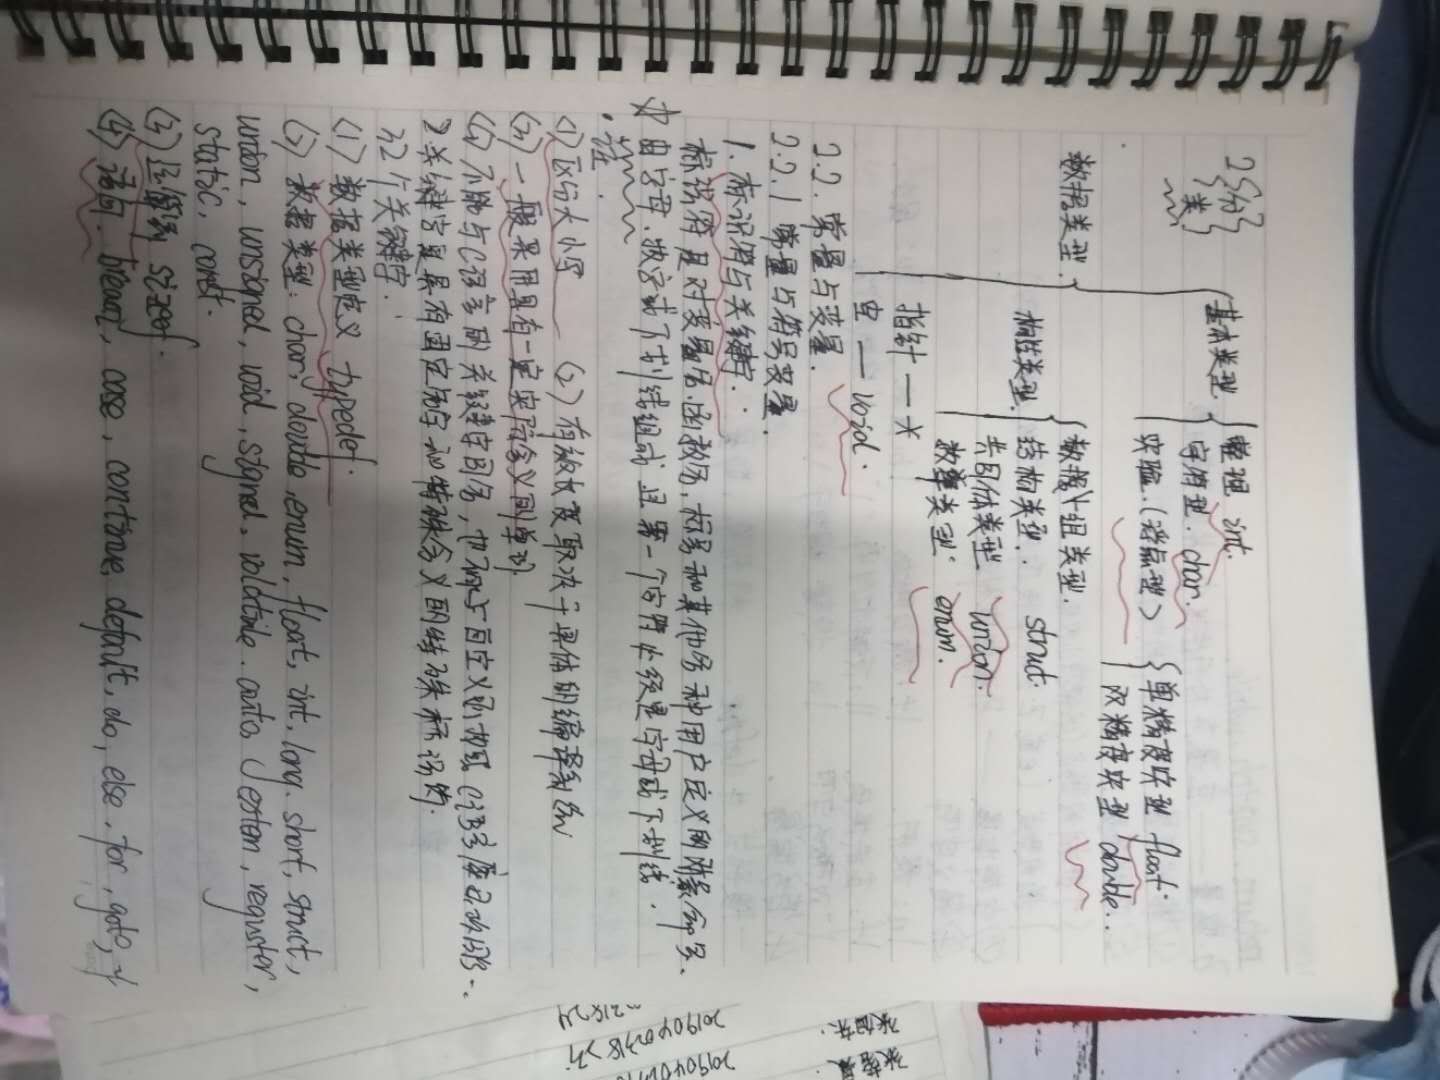 2分
类
数据类型.
基本类型
整型 int.
字符型. char.
实型.(浮点型)
单精度实型 float.
双精度实型 double..
构造类型.
数组类型.
结构类型. struct.
共用体类型 union.
枚举类型. enum.
指针 — *
空 — void.
2.2. 常量与变量.
2.2.1 常量与符号变量.
1. 标识符与关键字.
标识符是对变量名.函数名. 和其他各种用户定义的对象命名.
由字母.数字或下划线组成 且第一个字符必须是字母或下划线.
注.
(1) 区分大小写 (2) 有效长度取决于具体的编译系统
(3) 一般采用具有一定实际含义的单词.
(4) 不能与C语言的关键字同名, 也不能与自定义函数
2关键字是具有固定名字和特殊含义的特殊标识符.
32个关键字.
(1) 数据类型定义 typedef.
(2) 数据类型: char. double, enum, float, int, long, short, struct,
union, unsigned, void, signed, volatile. auto, extern, reguster,
static, const.
(3) 运算符 sizeof.
(4) 语句. break, case, continue, default, do, else, for, goto, if
20190402318